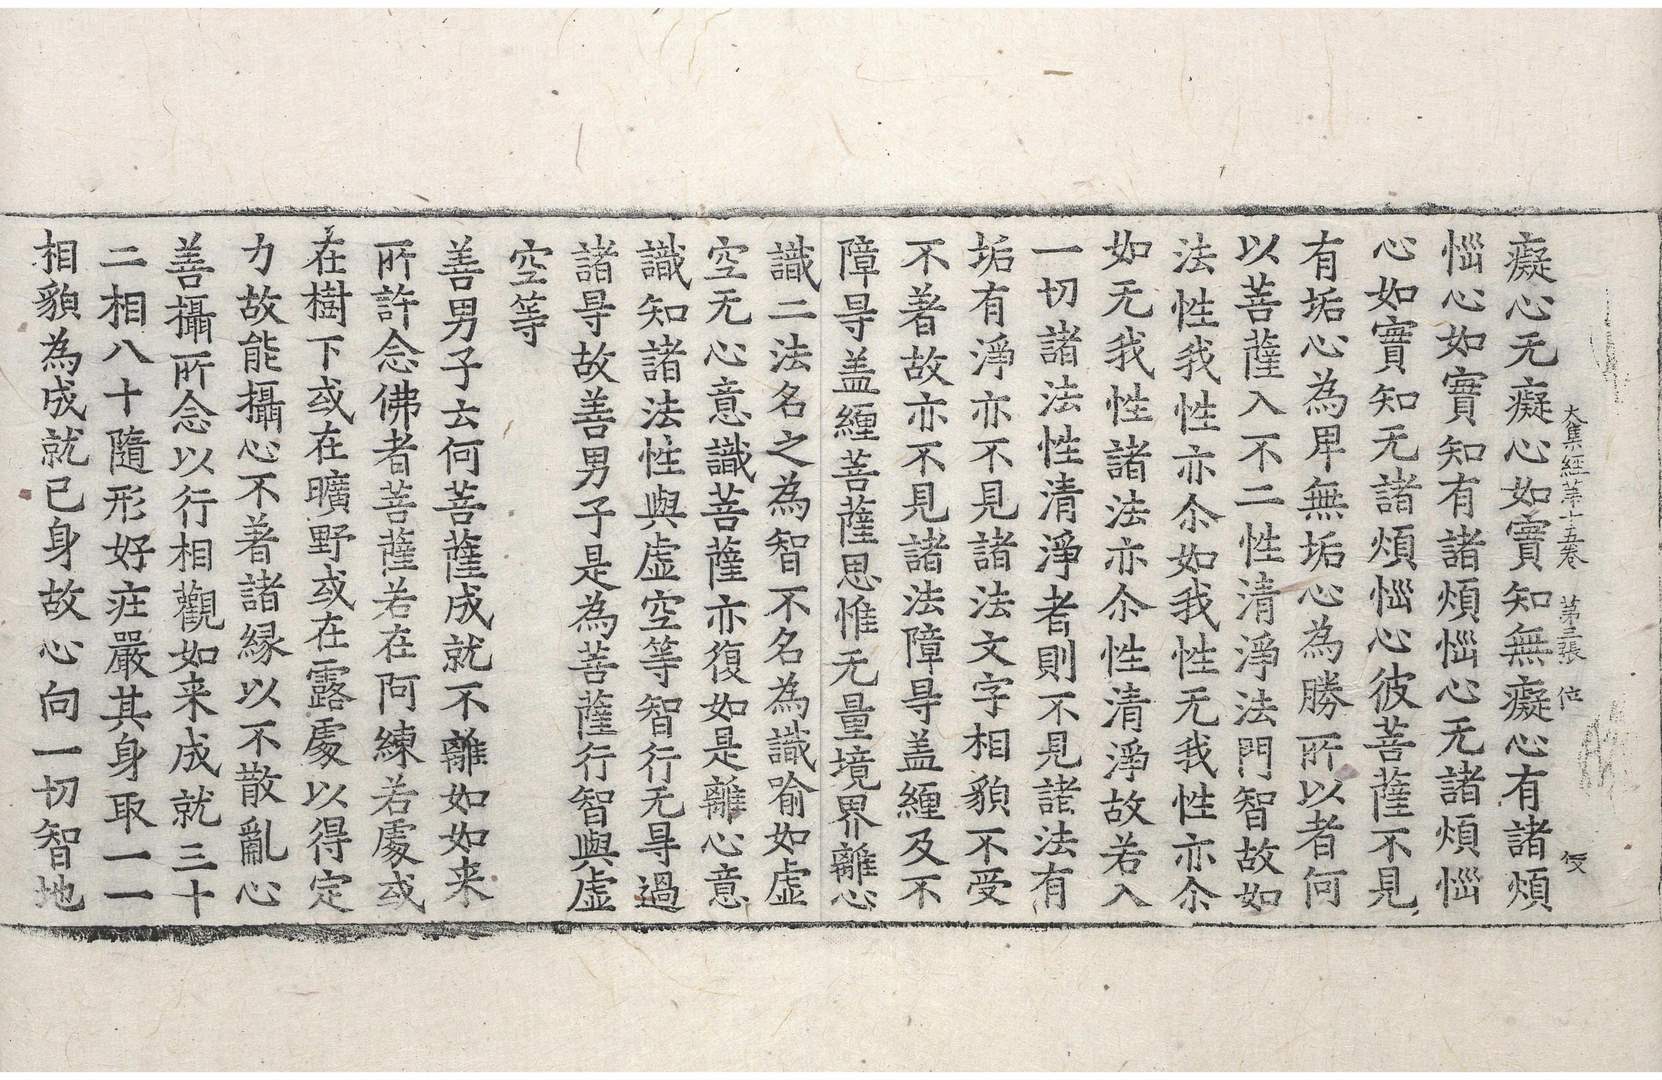 大集經苐十五卷　第三張　位　𠬧
癡心无癡心如實知無癡心有諸煩
惱心如實知有諸煩惱心无諸煩惱
心如實知无諸煩惱心彼菩薩不見
有垢心為卑無垢心為勝所以者何
以菩薩入不二性清淨法門智故如
法性我性亦尒如我性无我性亦尒
如无我性諸法亦尒性清淨故若入
一切諸法性清淨者則不見諸法有
垢有淨亦不見諸法文字相貌不受
不著故亦不見諸法障㝵盖纏及不
障㝵盖纏菩薩思惟无量境界離心
識二法名之為智不名為識喻如虛
空无心意識菩薩亦復如是離心意
識知諸法性與虛空等智行无㝵過
諸㝵故善男子是為菩薩行智與虛
空等
善男子云何菩薩成就不離如如来
所許念佛者菩薩若在阿練若處或
在樹下或在曠野或在露處以得定
力故能攝心不著諸縁以不散亂心
善攝所念以行相觀如来成就三十
二相八十隨形好莊嚴其身取一一
相貌為成就已身故心向一切智地